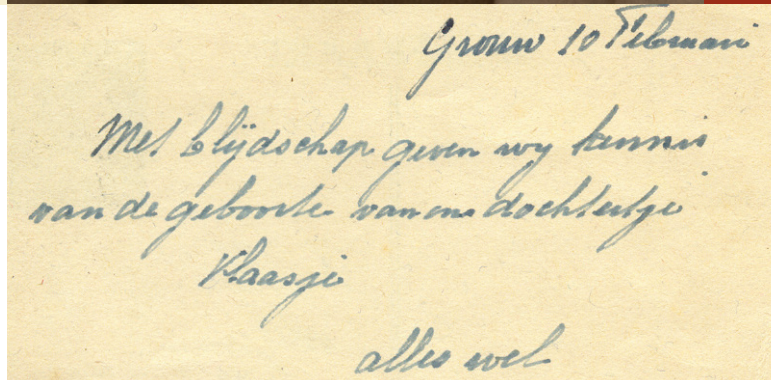 Grouw 10 Februari
Met blijdschap geven wij kennis
van de geboorte van ons dochtertje
Klaasje
alles wel